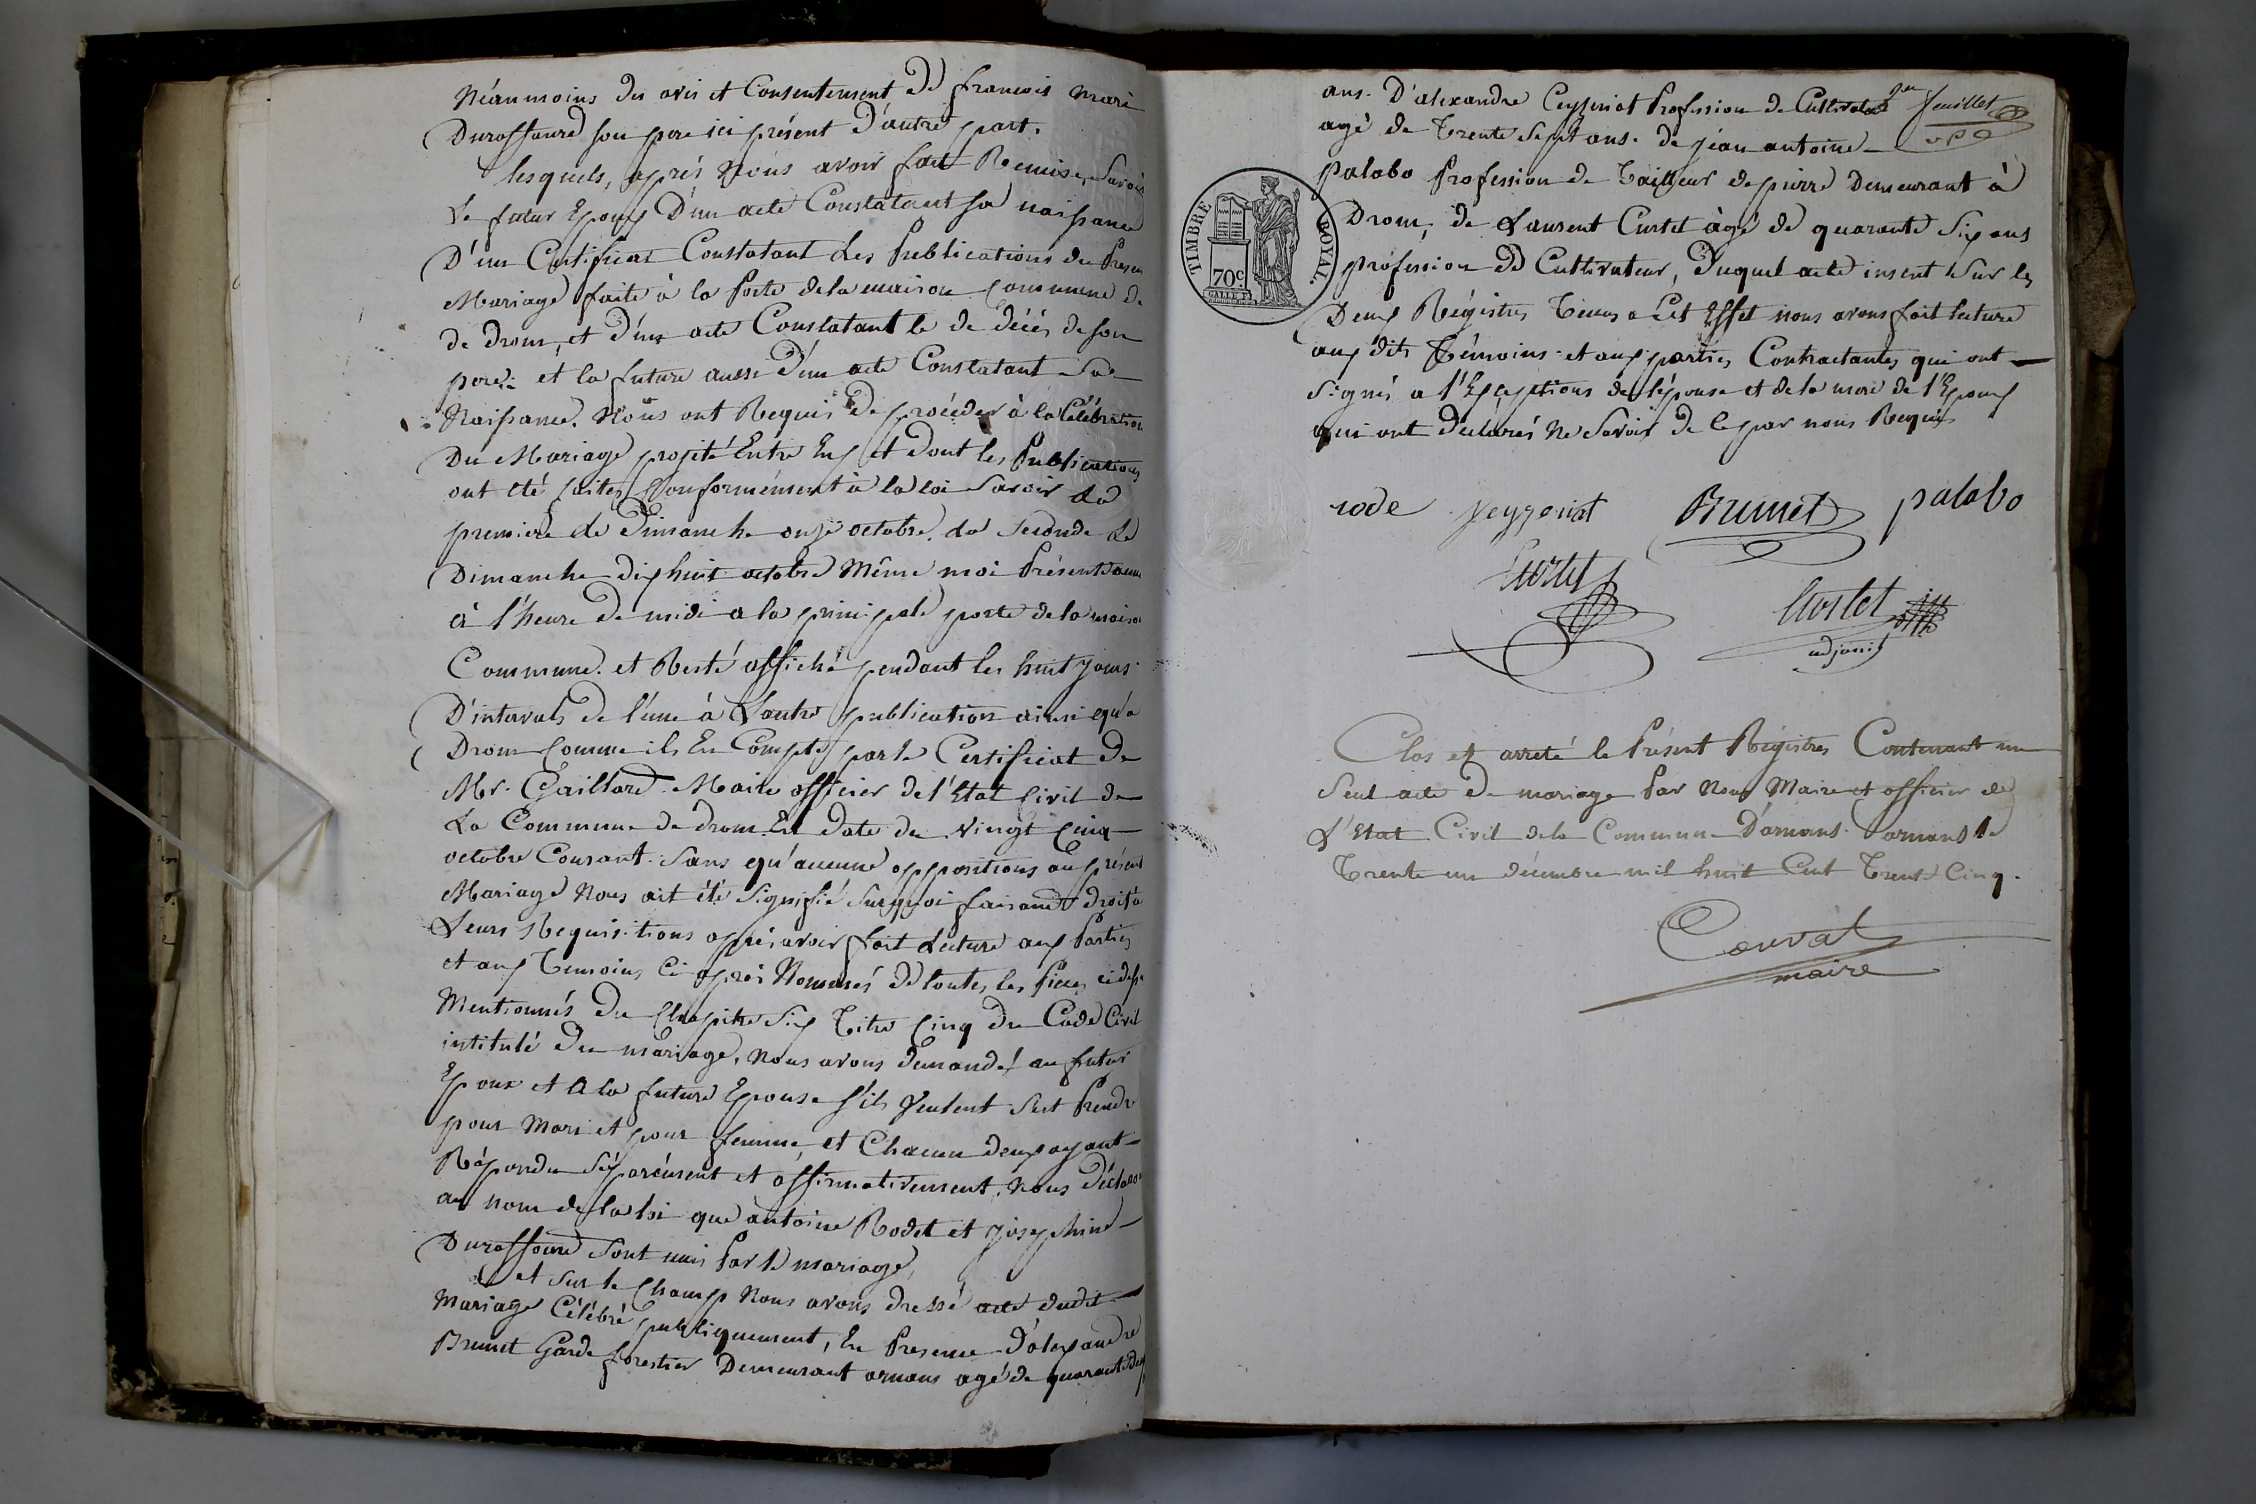 Néanmoins des avis et Consentement de françois marie
Duraffourd son pere ici présent D'autre part.
lesquels, après Nous avoir fait Remise, Savoir
Le futur Epoux D'un acte Constatant sa naissance
D'un Certificat Constatant Les Publications du Present
Mariage faite à la Porte de la maison Commune de
de Drom, et D'un acte Constatant le de décés de son
pere; et la future aussi D'un acte Constatant Sa
Naissance. Nous ont Requis de procéder à la Célébration
Du Mariage projeté Entre Eux et dont les Publications
ont été faites Conformément à la loi Savoir La
premiere de Dimanche onze octobre, La Seconde Le
Dimanche dix huit octobre Même moi Présent année
à l'heure de midi a la principale porte de la maison
Commune. et Resté affiché pendant les huit jours
D'intervals de l'une à L'autre publication ainsi qu'a
Drom Comme ils En Compte par le Certificat De
Mr. Gaillard. Maire officier de l'Etat Civil de
La Commune de drom En Date du Vingt Cinq
octobre Courant. Sans qu'aucune oppositions au présent
Mariage Nous ait été Signifié Surquoi faisant droit à
Leurs Requisitions après avoir fait Lecture aux Parties
et aux Temoins Ci après Nommés de toutes les Pieces ci dess
Mentionnés Du Chapitre Six Titre Cinq du Code Civil
intitulé du mariage, nous avons demandé au futur
Epoux et A la future Epouse s'ils Veulent Set Prendre
pour Mari et pour femme, et Chacun deux ayant
Répondu Séparément et affirmativement, Nous Déclarons
au nom de la loi que antoine Rodet et josephine
Duraffourd Sont unis Par le mariage,
et Sur le Champ Nous avons dressé acte dudit
Mariage Célébré publiquement, En Presence D'alexandre
Brunet Garde forestier Demeurant arnans agé de quarante deux
feuillet
ans. D'alexandre Ceyzeriat Profession de Cultivateur
agé de Trente Sept ans. de jéan antoine
Palabo Profession de Tailleur de pierre Demeurant à
Drom, de Laurent Curtet àgé de quarante Six ans
profession de Cultivateur, Duquel acte insent Sur les
Deux Régistres Tenus a Cet Effet nous avons fait lecture
aux dits Témoins et aux parties Contractantes qui ont
Signés a l'Exceptions de l'épouse et de la mere de l'Epoux
qui ont déclarés Ne Savoir de ce par nous Requis
TIMBRE ROYAL.
70c
rode Ceyzeriat Brunet palabo
Curtet
Curtet
adjoint
Clos et arreté le Présent Régistres Contenant un
Seul acte de mariage Par Nous Maire et officier de
L'Etat Civil de la Commune D'arnans. arnans le
Trente un décembre mil huit Cent Trente Cinq.
Convat
maire